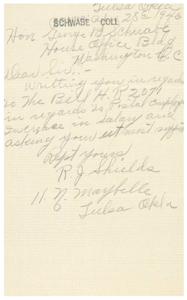 Tulsa Okla
SCHWABE COLL.
28th 1946
Hon George B. Schwabe
House Office Bldg
Washington D C
Dear Sir:-
Writing you in regards
to The Bill H R 2071
in regards to Postal Employees
increase in salary and
asking your utmost support
Resp Yours
R. J Shields
11. N. Maybelle
Tulsa Okla